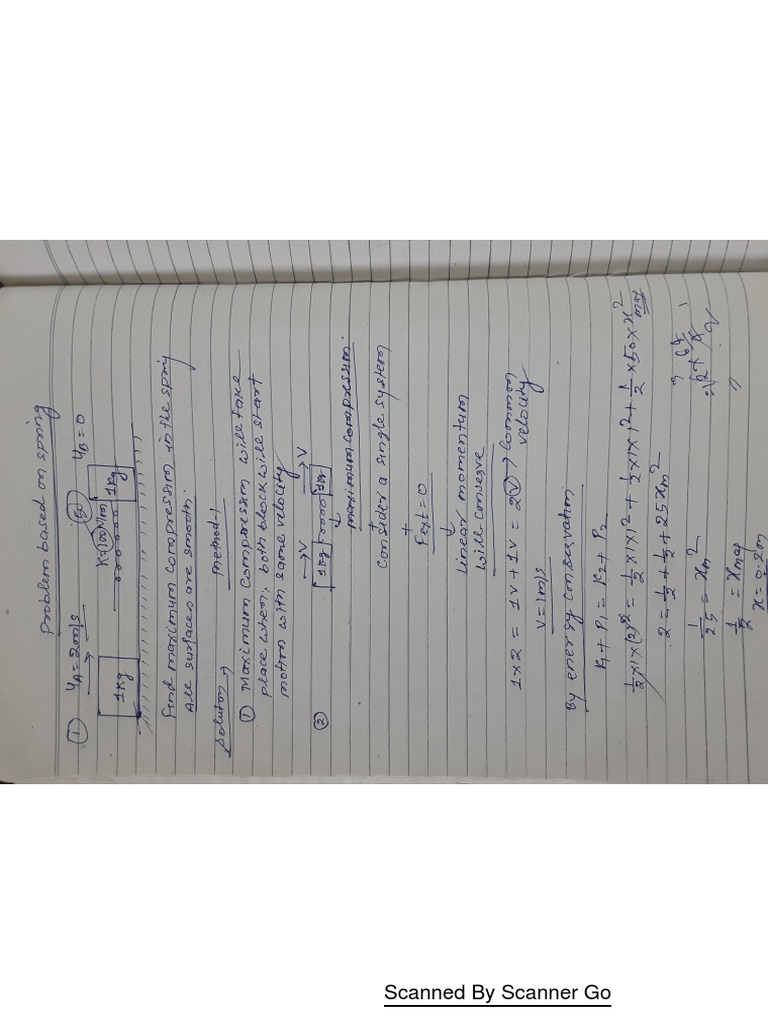 Problem based on spring
① uA = 2m/s K=100N/m 50 uB = 0
1Kg 1Kg
find maximum compression in the spring
All surfaces are smooth.
Solution → Method-1
① Maximum compression will take
place when, both block will start
motion with same velocity
② → V → V
1Kg 1Kg
maximum compression.
consider a single system
Fext = 0
linear momentum
will conserve
1×2 = 1v + 1v = 2v → common
velocity
V = 1m/s
By energy conservation
K1 + P1 = K2 + P2
1/2 ×1×(2)² = 1/2 ×1×1² + 1/2 ×1×1² + 1/2 ×50×x²max
2 = 1/2 + 1/2 + 25xm²
1/25 = xm²
= xmax
x = 0.2m
Scanned By Scanner Go